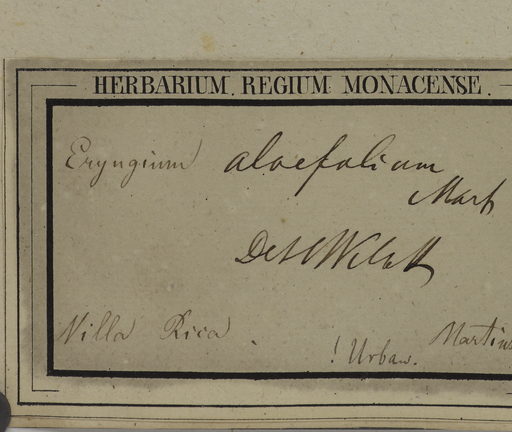 HERBARIUM REGIUM MONACENSE.
Eryngium aloefolium
Mart
Det
Villa Rica.
! Urban. Martius